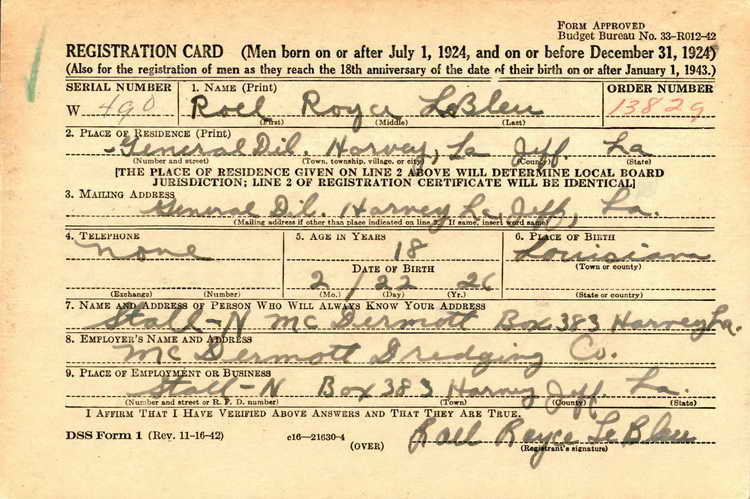 FORM APPROVED
Budget Bureau No. 33-R012-42
REGISTRATION CARD (Men born on or after July 1, 1924, and on or before December 31, 1924)
(Also for the registration of men as they reach the 18th anniversary of the date of their birth on or after January 1, 1943.)
SERIAL NUMBER 1. NAME (Print) ORDER NUMBER
W 490 Roel Royce LeBleu 13829
(First) (Middle) (Last)
2. PLACE OF RESIDENCE (Print)
General Del. Harvey, La Jeff. La
(Number and street) (Town, township, village, or city) (County) (State)
[THE PLACE OF RESIDENCE GIVEN ON LINE 2 ABOVE WILL DETERMINE LOCAL BOARD
JURISDICTION; LINE 2 OF REGISTRATION CERTIFICATE WILL BE IDENTICAL]
3. MAILING ADDRESS
General Del. Harvey La. Jeff, La.
(Mailing address if other than place indicated on line 2. If same, insert word same)
4. TELEPHONE 5. AGE IN YEARS 6. PLACE OF BIRTH
none 18 Louisiana
DATE OF BIRTH (Town or county)
2 / 22 26
(Exchange) (Number) (Mo.) (Day) (Yr.) (State or country)
7. NAME AND ADDRESS OF PERSON WHO WILL ALWAYS KNOW YOUR ADDRESS
Stall-N McDermott Box 383 Harvey La.
8. EMPLOYER'S NAME AND ADDRESS
McDermott Dredging Co.
9. PLACE OF EMPLOYMENT OR BUSINESS
Stall-N Box 383 Harvey Jeff. La.
(Number and street or R. F. D. number) (Town) (County) (State)
I AFFIRM THAT I HAVE VERIFIED ABOVE ANSWERS AND THAT THEY ARE TRUE.
DSS Form 1 (Rev. 11-16-42) c16—21630-4 Roel Royce LeBleu
(OVER) (Registrant's signature)